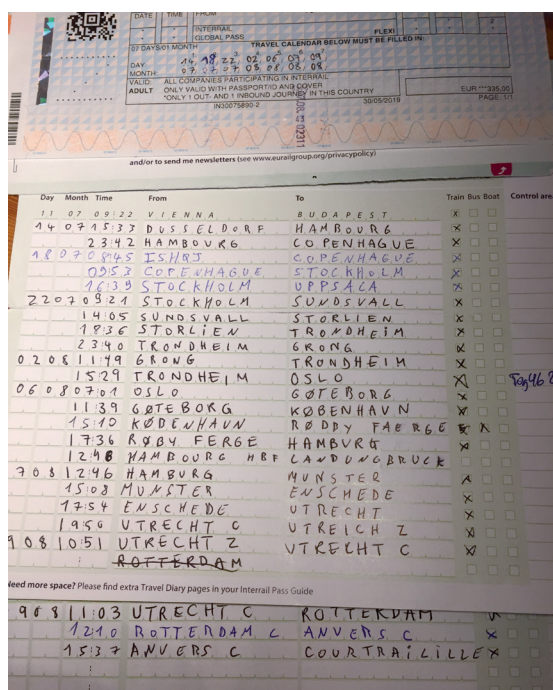 DATE TIME FROM
INTERRAIL FLEXI
GLOBAL PASS
07 DAYS/01 MONTH TRAVEL CALENDAR BELOW MUST BE FILLED IN:
DAY 14 18 22 02 06 07 09
MONTH: 07 07 07 08 08 08 08
VALID: ALL COMPANIES PARTICIPATING IN INTERRAIL
ADULT ONLY VALID WITH PASSPORT/ID AND COVER
*ONLY 1 OUT- AND 1 INBOUND JOURNEY IN THIS COUNTRY EUR ***335,00
IN30075890-2 30/05/2019 PAGE 1/1
and/or to send me newsletters (see www.eurailgroup.org/privacypolicy)
Day Month Time From To Train Bus Boat Control area
11 07 09:22 VIENNA BUDAPEST x
14 07 15:33 DUSSELDORF HAMBOURG x
23:42 HAMBOURG COPENHAGUE x
18 07 08:45 ISHØJ COPENHAGUE x
09:53 COPENHAGUE STOCKHOLM x
16:39 STOCKHOLM UPPSALA x
22 07 09:21 STOCKHOLM SUNDSVALL x
14:05 SUNDSVALL STORLIEN x
18:36 STORLIEN TRONDHEIM x
23:40 TRONDHEIM GRONG x
02 08 11:49 GRONG TRONDHEIM x
15:29 TRONDHEIM OSLO x
06 08 07:01 OSLO GØTEBORG x
11:39 GØTEBORG KØBENHAVN x
15:10 KØBENHAVN RØDBY FAERGE x x
17:36 RØBY FERGE HAMBURG x
12:46 HAMBOURG HBF LANDUNGBRUCK
7 08 12:46 HAMBURG MUNSTER x
15:08 MUNSTER ENSCHEDE x
17:54 ENSCHEDE UTRECHT x
19:56 UTRECHT C UTREICH Z x
9 08 10:51 UTRECHT Z UTRECHT C x
ROTTERDAM
Need more space? Please find extra Travel Diary pages in your Interrail Pass Guide
9 08 11:03 UTRECHT C ROTTERDAM
12:10 ROTTERDAM C ANVERS C x
15:37 ANVERS C COURTRAI LILLE x